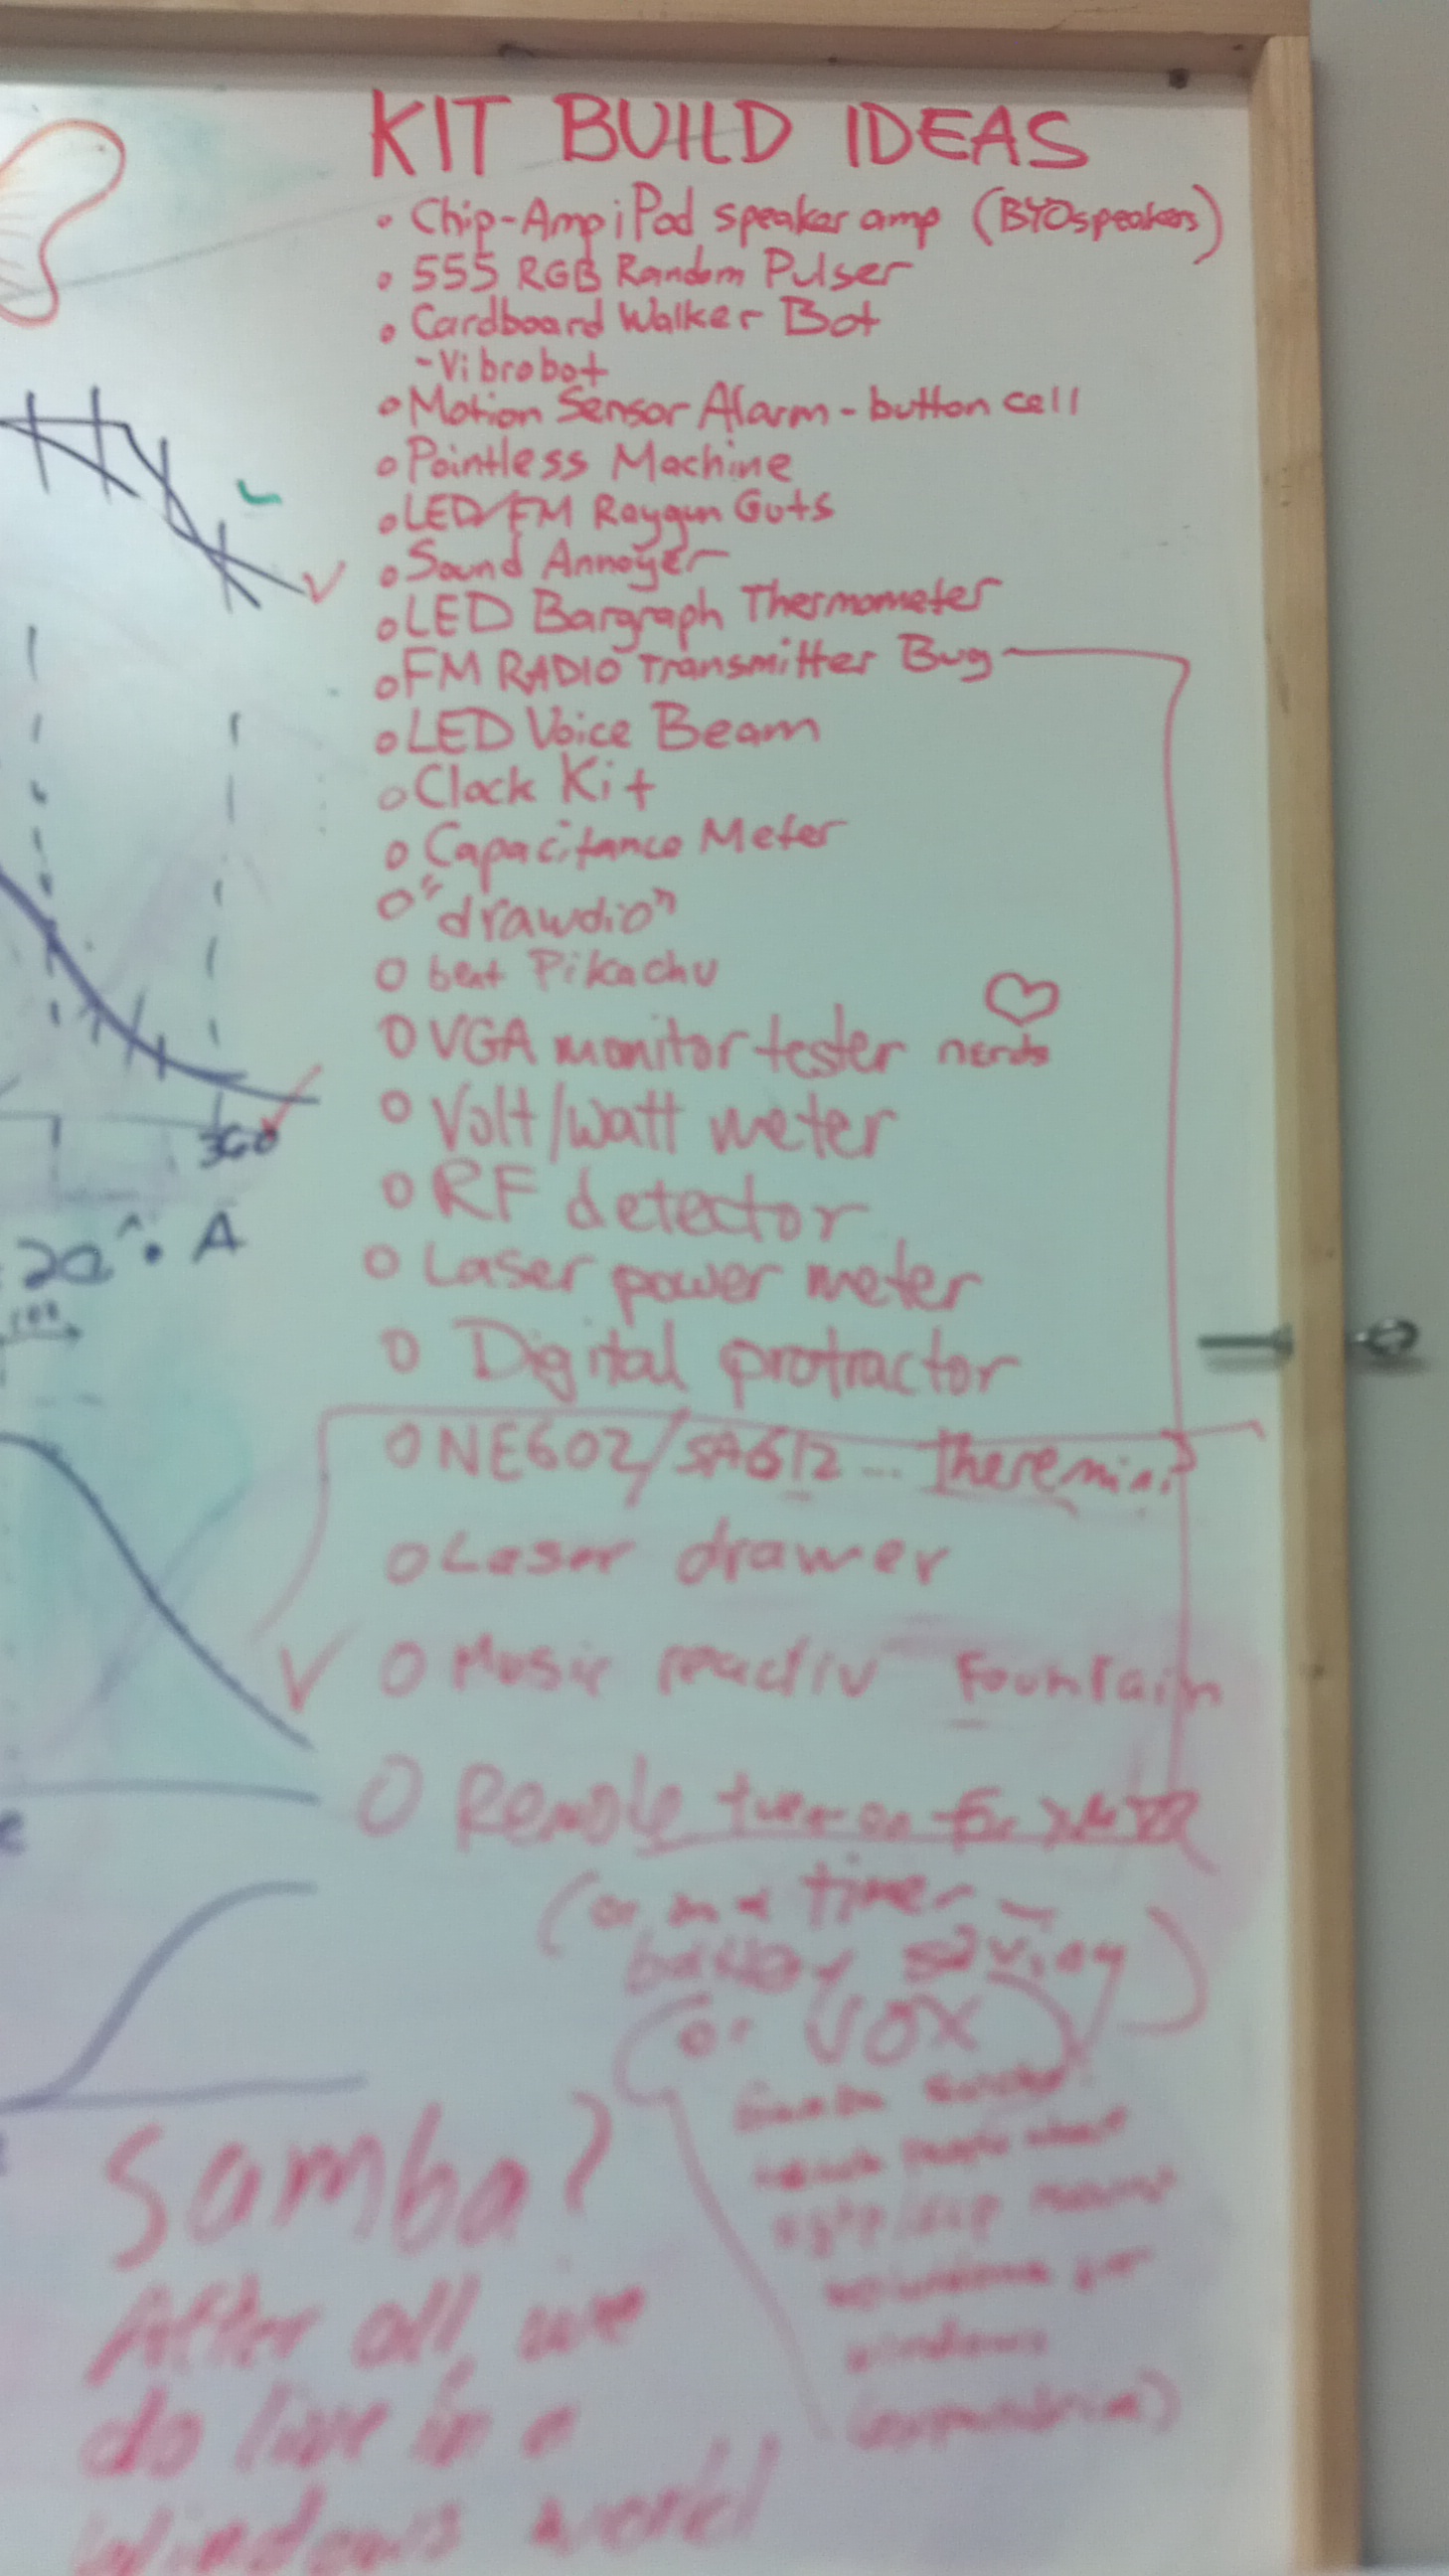 KIT BUILD IDEAS
Chip-Amp iPod speaker amp (BYOspeakers)
555 RGB Random Pulser
Cardboard Walker Bot
-Vibrobot
Motion Sensor Alarm - button cell
Pointless Machine
LED/FM Raygun Guts
Sound Annoyer
LED Bargraph Thermometer
FM RADIO Transmitter Bug
LED Voice Beam
Clock Kit
Capacitance Meter
"drawdio"
bent Pikachu
VGA monitor tester nerds
Volt/watt meter
360
RF detector
2a A
Laser power meter
Digital protractor
NE602/SA612 ... Theremin?
Laser drawer
Music reactiv Fountain
Remote turn on for XMTR
(or on a timer
battery saving)
(or VOX)
Samba?
After all, we
do live in a
Windows world
windows